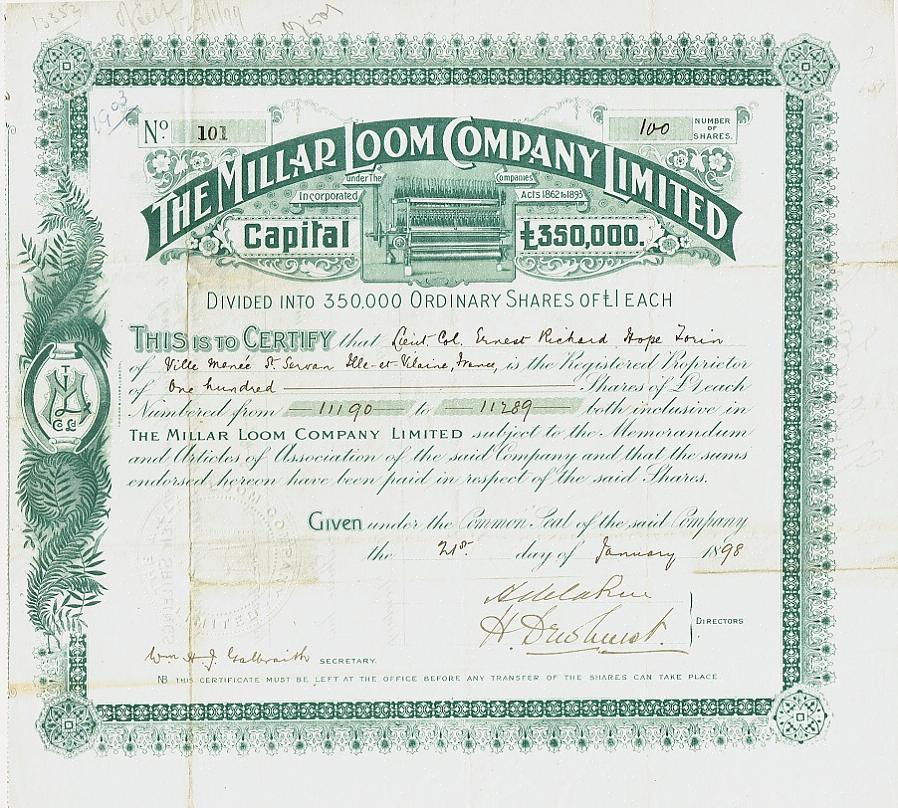 13352
No. 101
100 NUMBER OF SHARES.
1903
THE MILLAR LOOM COMPANY LIMITED
Incorporated under The Companies Acts 1862 to 1893
Capital £350,000.
DIVIDED INTO 350,000 ORDINARY SHARES OF £1 EACH
THIS IS TO CERTIFY that Lieut Col. Ernest Richard Hope Torin
of Ville Menée St. Servan Ille-et-Vilaine, France, is the Registered Proprietor
of One hundred Shares of £1 each
Numbered from 11190 to 11289 both inclusive in
THE MILLAR LOOM COMPANY LIMITED subject to the Memorandum
and Articles of Association of the said Company and that the sums
endorsed hereon have been paid in respect of the said Shares.
Given under the Common Seal of the said Company
the 21st. day of January 1898
H. Dewhurst.
DIRECTORS
Wm H. J. Galbraith SECRETARY.
NB THIS CERTIFICATE MUST BE LEFT AT THE OFFICE BEFORE ANY TRANSFER OF THE SHARES CAN TAKE PLACE